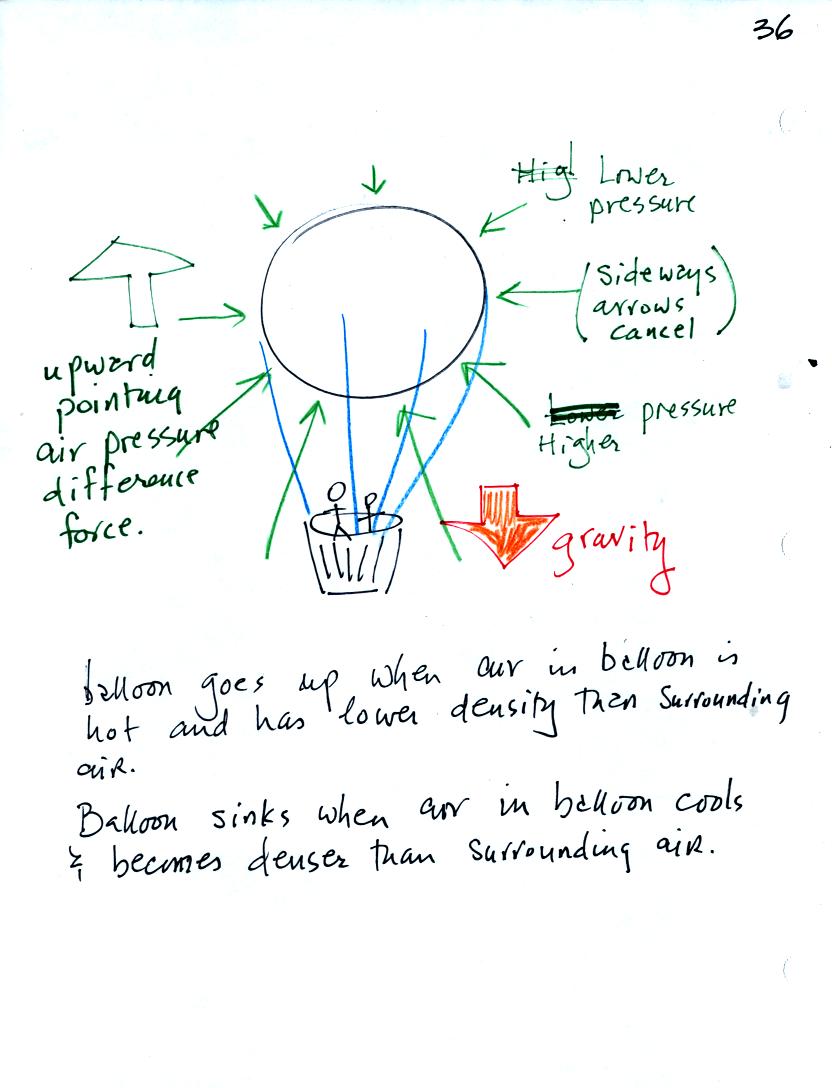 36
Hig Lower
pressure
(Sideways
arrows
cancel)
upward
pointing
air pressure
difference
force.
Lower pressure
Higher
gravity
balloon goes up when air in balloon is
hot and has lower density than surrounding
air.
Balloon sinks when air in balloon cools
& becomes denser than surrounding air.